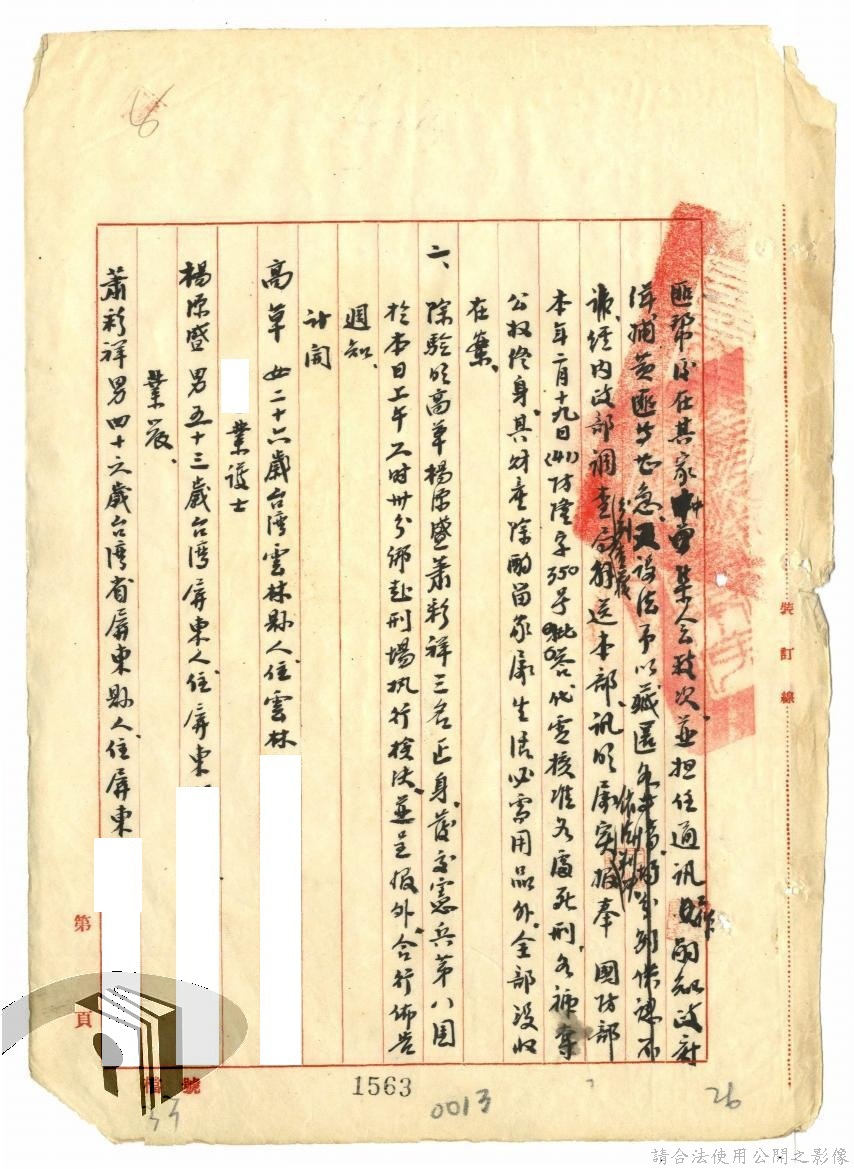 匪幫後在其家 集会数次並担任通訊工作嗣知政府
緝捕黃匪等甚急又設法予以藏匿
誰經內政部調查局解送本部訊明屬实报奉 國防部
分別產凝
本年二月十九日(41)防隆字350号批答代電核准各處死刑各褫奪
公权終身其財產除酌留家屬生活必需用品外全部沒收
在案
六、除驗明高草楊深盛蕭彩祥三名正身發交憲兵第八團
於本日上午 时卅分綁赴刑場执行槍决並呈报外合行佈告
週知
計開
高草 女二十六歲台灣雲林縣人住雲林
業護士
楊深盛 男五十三歲台灣屏東人住屏東
業農
蕭彩祥男四十六歲台灣省屏東縣人住屏東
第
頁
檔號
裝訂線
1563
0013
26
請合法使用公開之影像